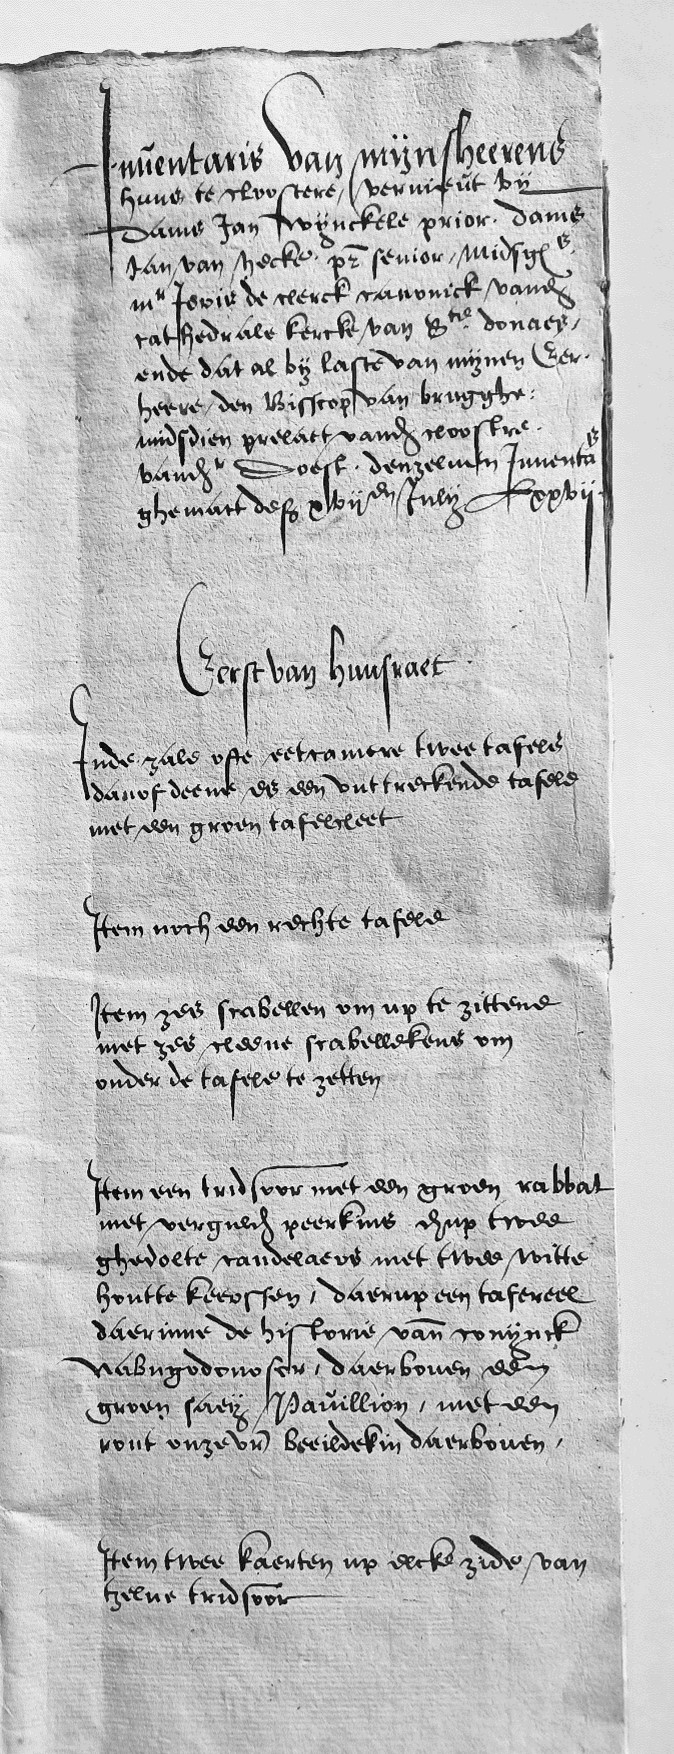 Inventaris van mijnsheerens
huus te cloostere, vernieut bij
Dams Jan Wijnckele prior. dams
Jan van Hecke. pr̄ senior, midsg̃s
mr Joris de clerck canonick vandr̄
cathedrale kercke van Ste donaes,
ende dat al bij laste van mijnen Eer.
heere den Bisscop van brugghe.
midsdien prelaet vandr̄ cloostre.
vandr̄ Doest. denzelven Inventaris
ghemaect desr̄ xviien July Lxxvij
Eerst van huusraet.
Inde zale ofte eetcamere twee tafels
danof deene es een uuttreckende tafele
met een groen tafelcleet
Item noch een rechte tafele
Item zes scabellen om up te zittene
met zes cleene scabellekens om
onder de tafele te zetten
Item een tridsoor met een groen rabbat
met verguldr̄ peerkins dr̄up twee
ghedolte candelaers met twee witte
houtte keerssen, daerup een tafereel
daerinne de historie vanr̄ conijnck
Nabugodonosor, daerboven een
groen saey Pavillion, met een
ront onzevr̄ beeildekin daerboven,
Item twee kaerten up elcke zide van
tzelve tridsoor